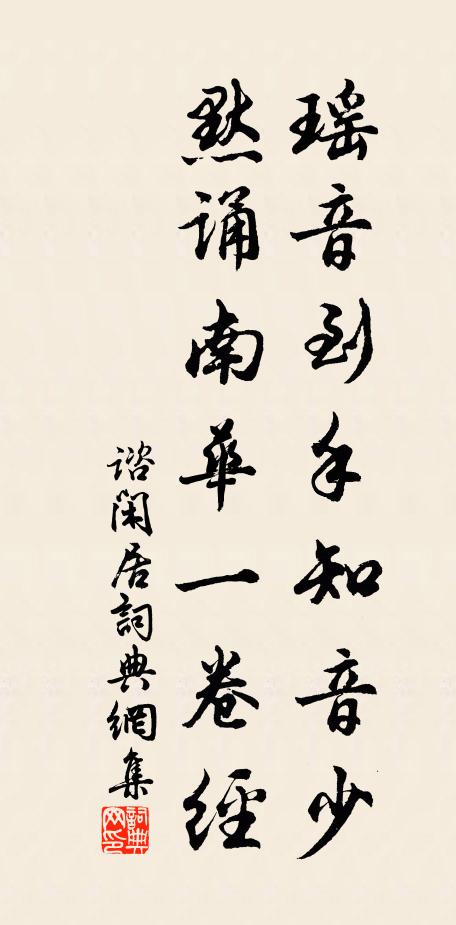 瑶音到手知音少
默誦南華一卷經
諮閑居詞典網集
詞典
网印